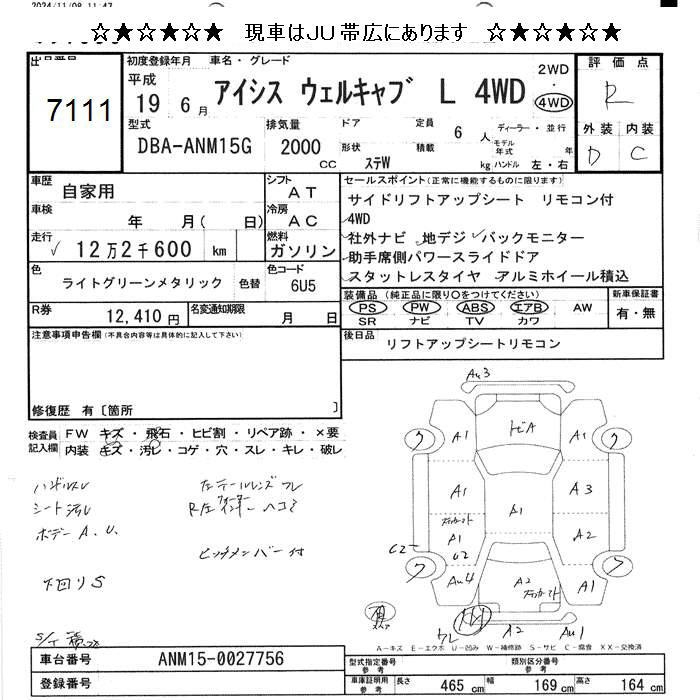 2024/11/08 11:47
☆★☆★☆★ 現車はJU帯広にあります ☆★☆★☆★
出品番号
7111
初度登録年月 車名・グレード
平成
19 6月 アイシス ウェルキャブ L 4WD
2WD
・
4WD
評価点
R
外装 内装
D C
型式 排気量 ドア 定員 6 人 ディーラー・並行
DBA-ANM15G 2000 cc
形状 積載 kg
モデル年式 年
ステW ハンドル 左・右
車歴 自家用
シフト AT
車検 年 月( 日)
冷房 AC
走行 √ 12万2千600 km
燃料 ガソリン
色 ライトグリーンメタリック 色替
色コード 6U5
R券 12,410円
名変通知期限 月 日
セールスポイント(正常に機能するものに限ります)
サイドリフトアップシート リモコン付
4WD
社外ナビ 地デジ バックモニター
助手席側パワースライドドア
スタットレスタイヤ アルミホイール積込
装備品(純正品に限り○をつけてください)
PS PW ABS エアB AW
SR ナビ TV カワ
新車保証書
有・無
後日品 リフトアップシートリモコン
注意事項申告欄(不具合内容等は具体的に記入して下さい)
修復歴 有〔箇所 〕
検査員記入欄
FW キズ・飛石・ヒビ割・リペア跡・×要
内装 キズ・汚レ・コゲ・穴・スレ・キレ・破レ
ハンドルスレ
シート汚レ
ボデーA.U.
下回りS
左テールレンズワレ
R左インナーヘコミ
ピッチメンバー付
Au3
A1
A1
A1
A3
A1
A1
A2
C2
Au4
A2
A1
A2
Au1
ワレ
A-キズ E-エクボ U-凹み W-補修跡 S-サビ C-腐食 XX-交換済
車台番号 ANM15-0027756
登録番号
型式指定番号 参考
類別区分番号 参考
車庫証明用 参考 長さ 465 cm 幅 169 cm 高さ 164 cm